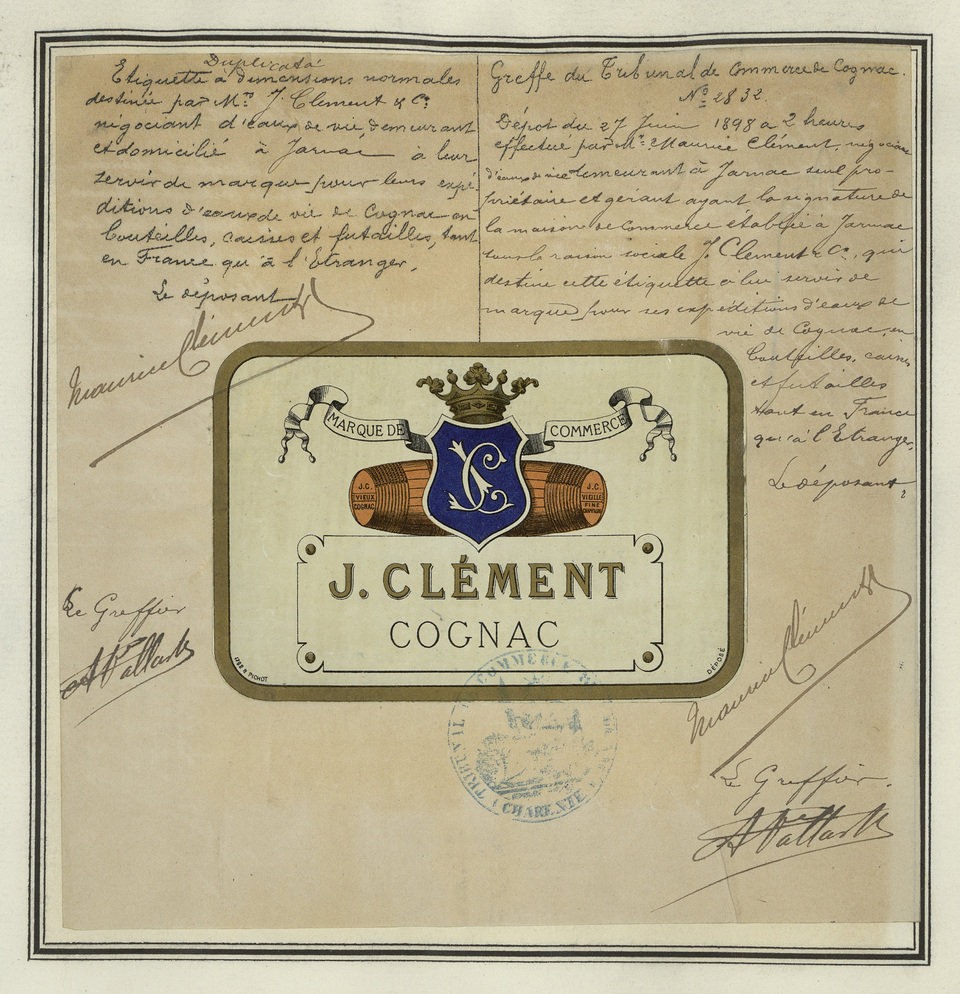 Duplicata
Etiquette à dimensions normales
destinée par Mrs J. Clement & Co
négociant d'eaux de vie, demeurant
et domicilié à Jarnac à leur
servir de marque pour leurs expé-
ditions d'eaux de vie de Cognac en
bouteilles, caisses et futailles, tant
en France qu'à l'Etranger.
Le déposant
Maurice Clément
Greffe du Tribunal de Commerce de Cognac.
No 2832.
Dépot du 27 Juin 1898 a 2 heures
effectué par Mr Maurice Clément, négociant
d'eaux de vie demeurant à Jarnac seul pro-
priétaire et gérant ayant la signature de
la maison de Commerce établie à Jarnac
sous la raison sociale J. Clement & Co, qui
destine cette étiquette à lui servir de
marque pour ses expéditions d'eaux de
vie de Cognac, en
bouteilles, caisses
et futailles
tant en France
qu'à l'Etranger.
Le déposant
MARQUE DE COMMERCE
JC
J.C. VIEUX COGNAC
J.C. VIEILLE FINE
J. CLÉMENT
COGNAC
PICHOT
DÉPOSÉ
Le Greffier
Maurice Clément
TRIBUNAL DE COMMERCE
(CHARENTE)
Le Greffier.